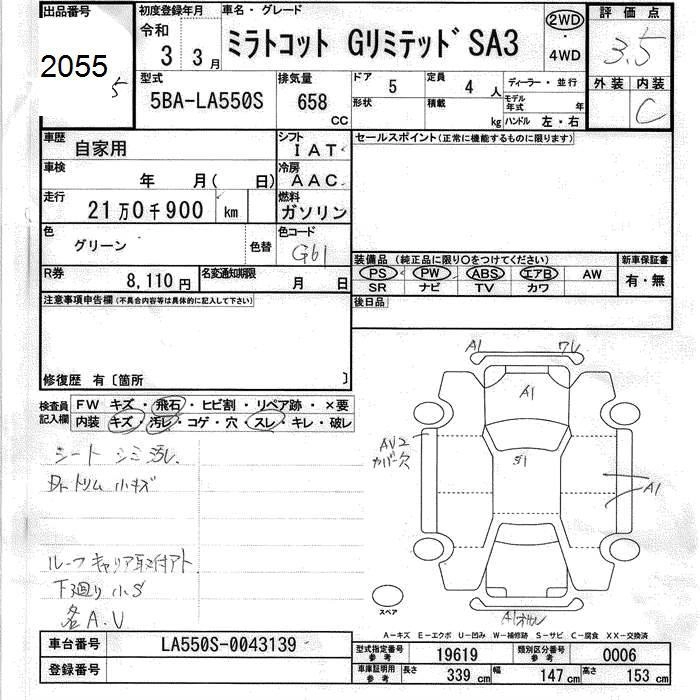 出品番号 初度登録年月 車名・グレード 2WD 評価点
2055 令和 3年 3月 ミラトコット Gリミテッド SA3 ・ 3.5
5 4WD
型式 排気量 ドア 5 定員 4人 ディーラー・並行 外装 内装
5BA-LA550S 658 cc 形状 積載 kg モデル年式 年 ハンドル 左・右 C
車歴 自家用 シフト IAT セールスポイント(正常に機能するものに限ります)
車検 年 月( 日) 冷房 AAC
走行 21万0千900 km 燃料 ガソリン
色 グリーン 色替 色コード G61
装備品(純正品に限り○をつけてください) 新車保証書
R券 8,110円 名変通知期限 月 日 PS PW ABS エアB AW 有・無
SR ナビ TV カワ
注意事項申告欄(不具合内容等は具体的に記入して下さい) 後日品
修復歴 有〔箇所 〕
検査員記入欄 FW キズ・飛石・ヒビ割・リペア跡・×要
内装 キズ・汚レ・コゲ・穴・スレ・キレ・破レ
シート シミ汚レ
Dr.トリム 小キズ
ルーフキャリア取付アト
下廻り 小S
各A.U
A1 ワレ
A1
AV2
カバー欠
A1
スペア
A-キズ E-エクボ U-凹み W-補修跡 S-サビ C-腐食 XX-交換済
車台番号 LA550S-0043139 型式指定番号 参考 19619 類別区分番号 参考 0006
登録番号 車庫証明用 参考 長さ 339 cm 幅 147 cm 高さ 153 cm